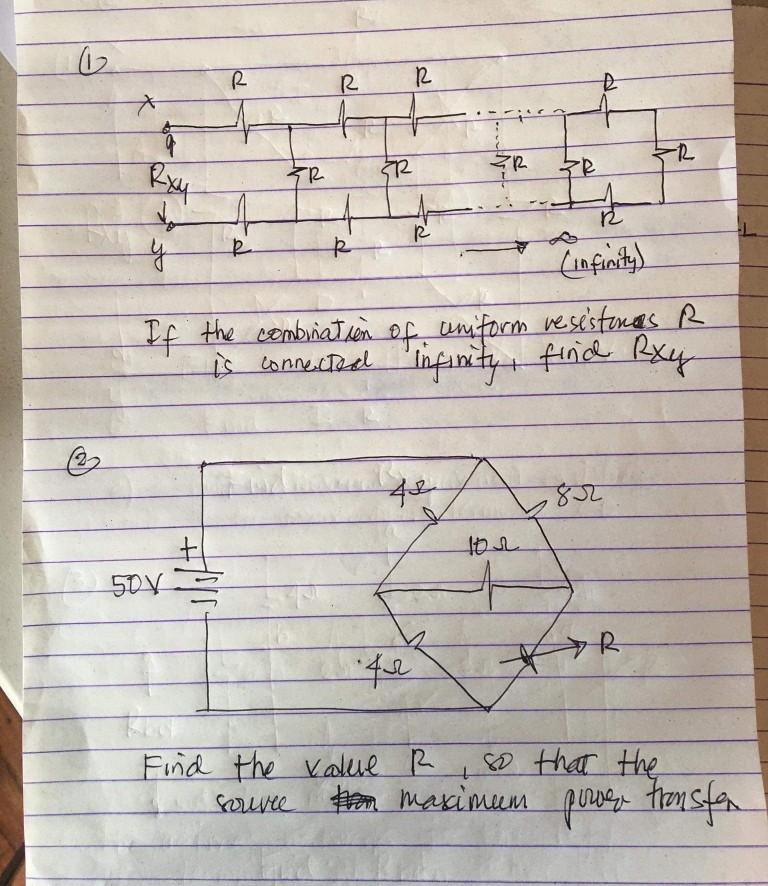 (1)
R R R R
X
Rxy R R R R R
y R R R R
∞
(infinity)
If the combination of uniform resistances R
is connected infinity, find Rxy
(2)
4Ω 8Ω
+ 10Ω
50V
4Ω R
Find the value R, so that the
source maximum power transfer